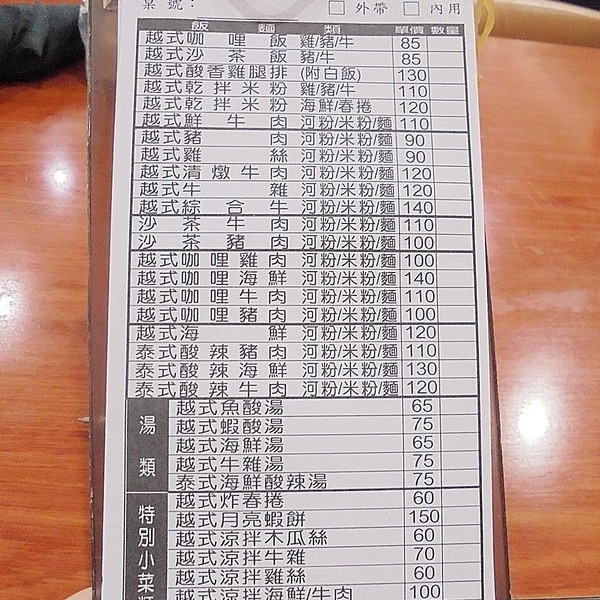 桌號： □ 外帶 □ 內用
飯麵類 單價 數量
越式咖哩飯 雞/豬/牛 85
越式沙茶飯 豬/牛 85
越式酸香雞腿排 (附白飯) 130
越式乾拌米粉 雞/豬/牛 110
越式乾拌米粉 海鮮/春捲 120
越式鮮牛肉 河粉/米粉/麵 110
越式豬肉 河粉/米粉/麵 90
越式雞絲 河粉/米粉/麵 90
越式清燉牛肉 河粉/米粉/麵 120
越式牛雜 河粉/米粉/麵 120
越式綜合牛 河粉/米粉/麵 140
沙茶牛肉 河粉/米粉/麵 110
沙茶豬肉 河粉/米粉/麵 100
越式咖哩雞肉 河粉/米粉/麵 100
越式咖哩海鮮 河粉/米粉/麵 140
越式咖哩牛肉 河粉/米粉/麵 110
越式咖哩豬肉 河粉/米粉/麵 100
越式海鮮 河粉/米粉/麵 120
泰式酸辣豬肉 河粉/米粉/麵 110
泰式酸辣海鮮 河粉/米粉/麵 130
泰式酸辣牛肉 河粉/米粉/麵 120
湯類
越式魚酸湯 65
越式蝦酸湯 75
越式海鮮湯 65
越式牛雜湯 75
泰式海鮮酸辣湯 75
特別小菜類
越式炸春捲 60
越式月亮蝦餅 150
越式涼拌木瓜絲 60
越式涼拌牛雜 70
越式涼拌雞絲 60
越式涼拌海鮮/牛肉 100